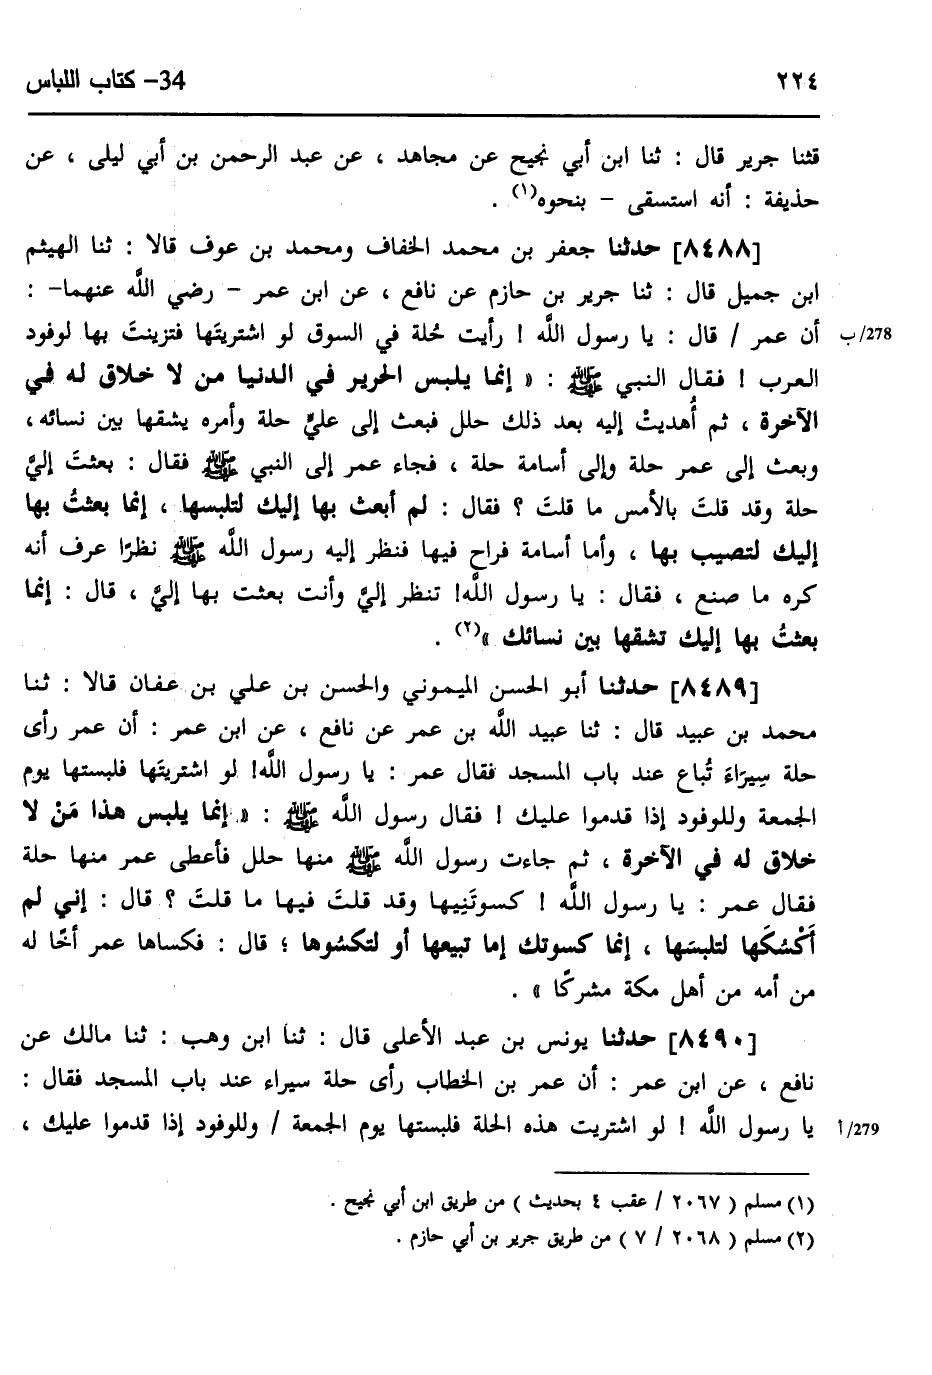 ٢٢٤ 34- كتاب اللباس
قثنا جرير قال : ثنا ابن أبي نجيح عن مجاهد ، عن عبد الرحمن بن أبي ليلى ، عن
حذيفة : أنه استسقى - بنحوه(١) .
[٨٤٨٨] حدثنا جعفر بن محمد الخفاف ومحمد بن عوف قالا : ثنا الهيثم
ابن جميل قال : ثنا جرير بن حازم عن نافع ، عن ابن عمر - رضي اللَّه عنهما- :
278/ب أن عمر / قال : يا رسول اللَّه ! رأيت حُلة في السوق لو اشتريتَها فتزينتَ بها لوفود
العرب ! فقال النبي ﷺ : « إنما يلبس الحرير في الدنيا من لا خلاق له في
الآخرة ، ثم أُهديتْ إليه بعد ذلك حلل فبعث إلى عليٍّ حلة وأمره يشقها بين نسائه،
وبعث إلى عمر حلة وإلى أسامة حلة ، فجاء عمر إلى النبي ﷺ فقال : بعثتَ إليَّ
حلة وقد قلتَ بالأمس ما قلتَ ؟ فقال : لم أبعث بها إليك لتلبسها ، إنما بعثتُ بها
إليك لتصيب بها ، وأما أسامة فراح فيها فنظر إليه رسول اللَّه ﷺ نظرًا عرف أنه
كره ما صنع ، فقال : يا رسول اللَّه! تنظر إليَّ وأنت بعثت بها إليَّ ، قال : إنما
بعثتُ بها إليك تشقها بين نسائك »(٢) .
[٨٤٨٩] حدثنا أبو الحسن الميموني والحسن بن علي بن عفان قالا : ثنا
محمد بن عبيد قال : ثنا عبيد اللَّه بن عمر عن نافع ، عن ابن عمر : أن عمر رأى
حلة سِيرَاءَ تُباع عند باب المسجد فقال عمر : يا رسول اللَّه! لو اشتريتَها فلبستها يوم
الجمعة وللوفود إذا قدموا عليك ! فقال رسول اللَّه ﷺ : « إنما يلبس هذا مَنْ لا
خلاق له في الآخرة ، ثم جاءت رسول اللَّه ﷺ منها حلل فأعطى عمر منها حلة
فقال عمر : يا رسول اللَّه ! كسوتَنِيها وقد قلتَ فيها ما قلتَ ؟ قال : إني لم
أَكْسُكَها لتلبسَها ، إنما كسوتك إما تبيعها أو لتكسُوها ؛ قال : فكساها عمر أخًا له
من أمه من أهل مكة مشركًا » .
[٨٤٩٠] حدثنا يونس بن عبد الأعلى قال : ثنا ابن وهب : ثنا مالك عن
نافع ، عن ابن عمر : أن عمر بن الخطاب رأى حلة سيراء عند باب المسجد فقال :
279/أ يا رسول اللَّه ! لو اشتريت هذه الحلة فلبستها يوم الجمعة / وللوفود إذا قدموا عليك ،
(١) مسلم ( ٢٠٦٧ / عقب ٤ بحديث ) من طريق ابن أبي نجيح .
(٢) مسلم ( ٢٠٦٨ / ٧ ) من طريق جرير بن أبي حازم .